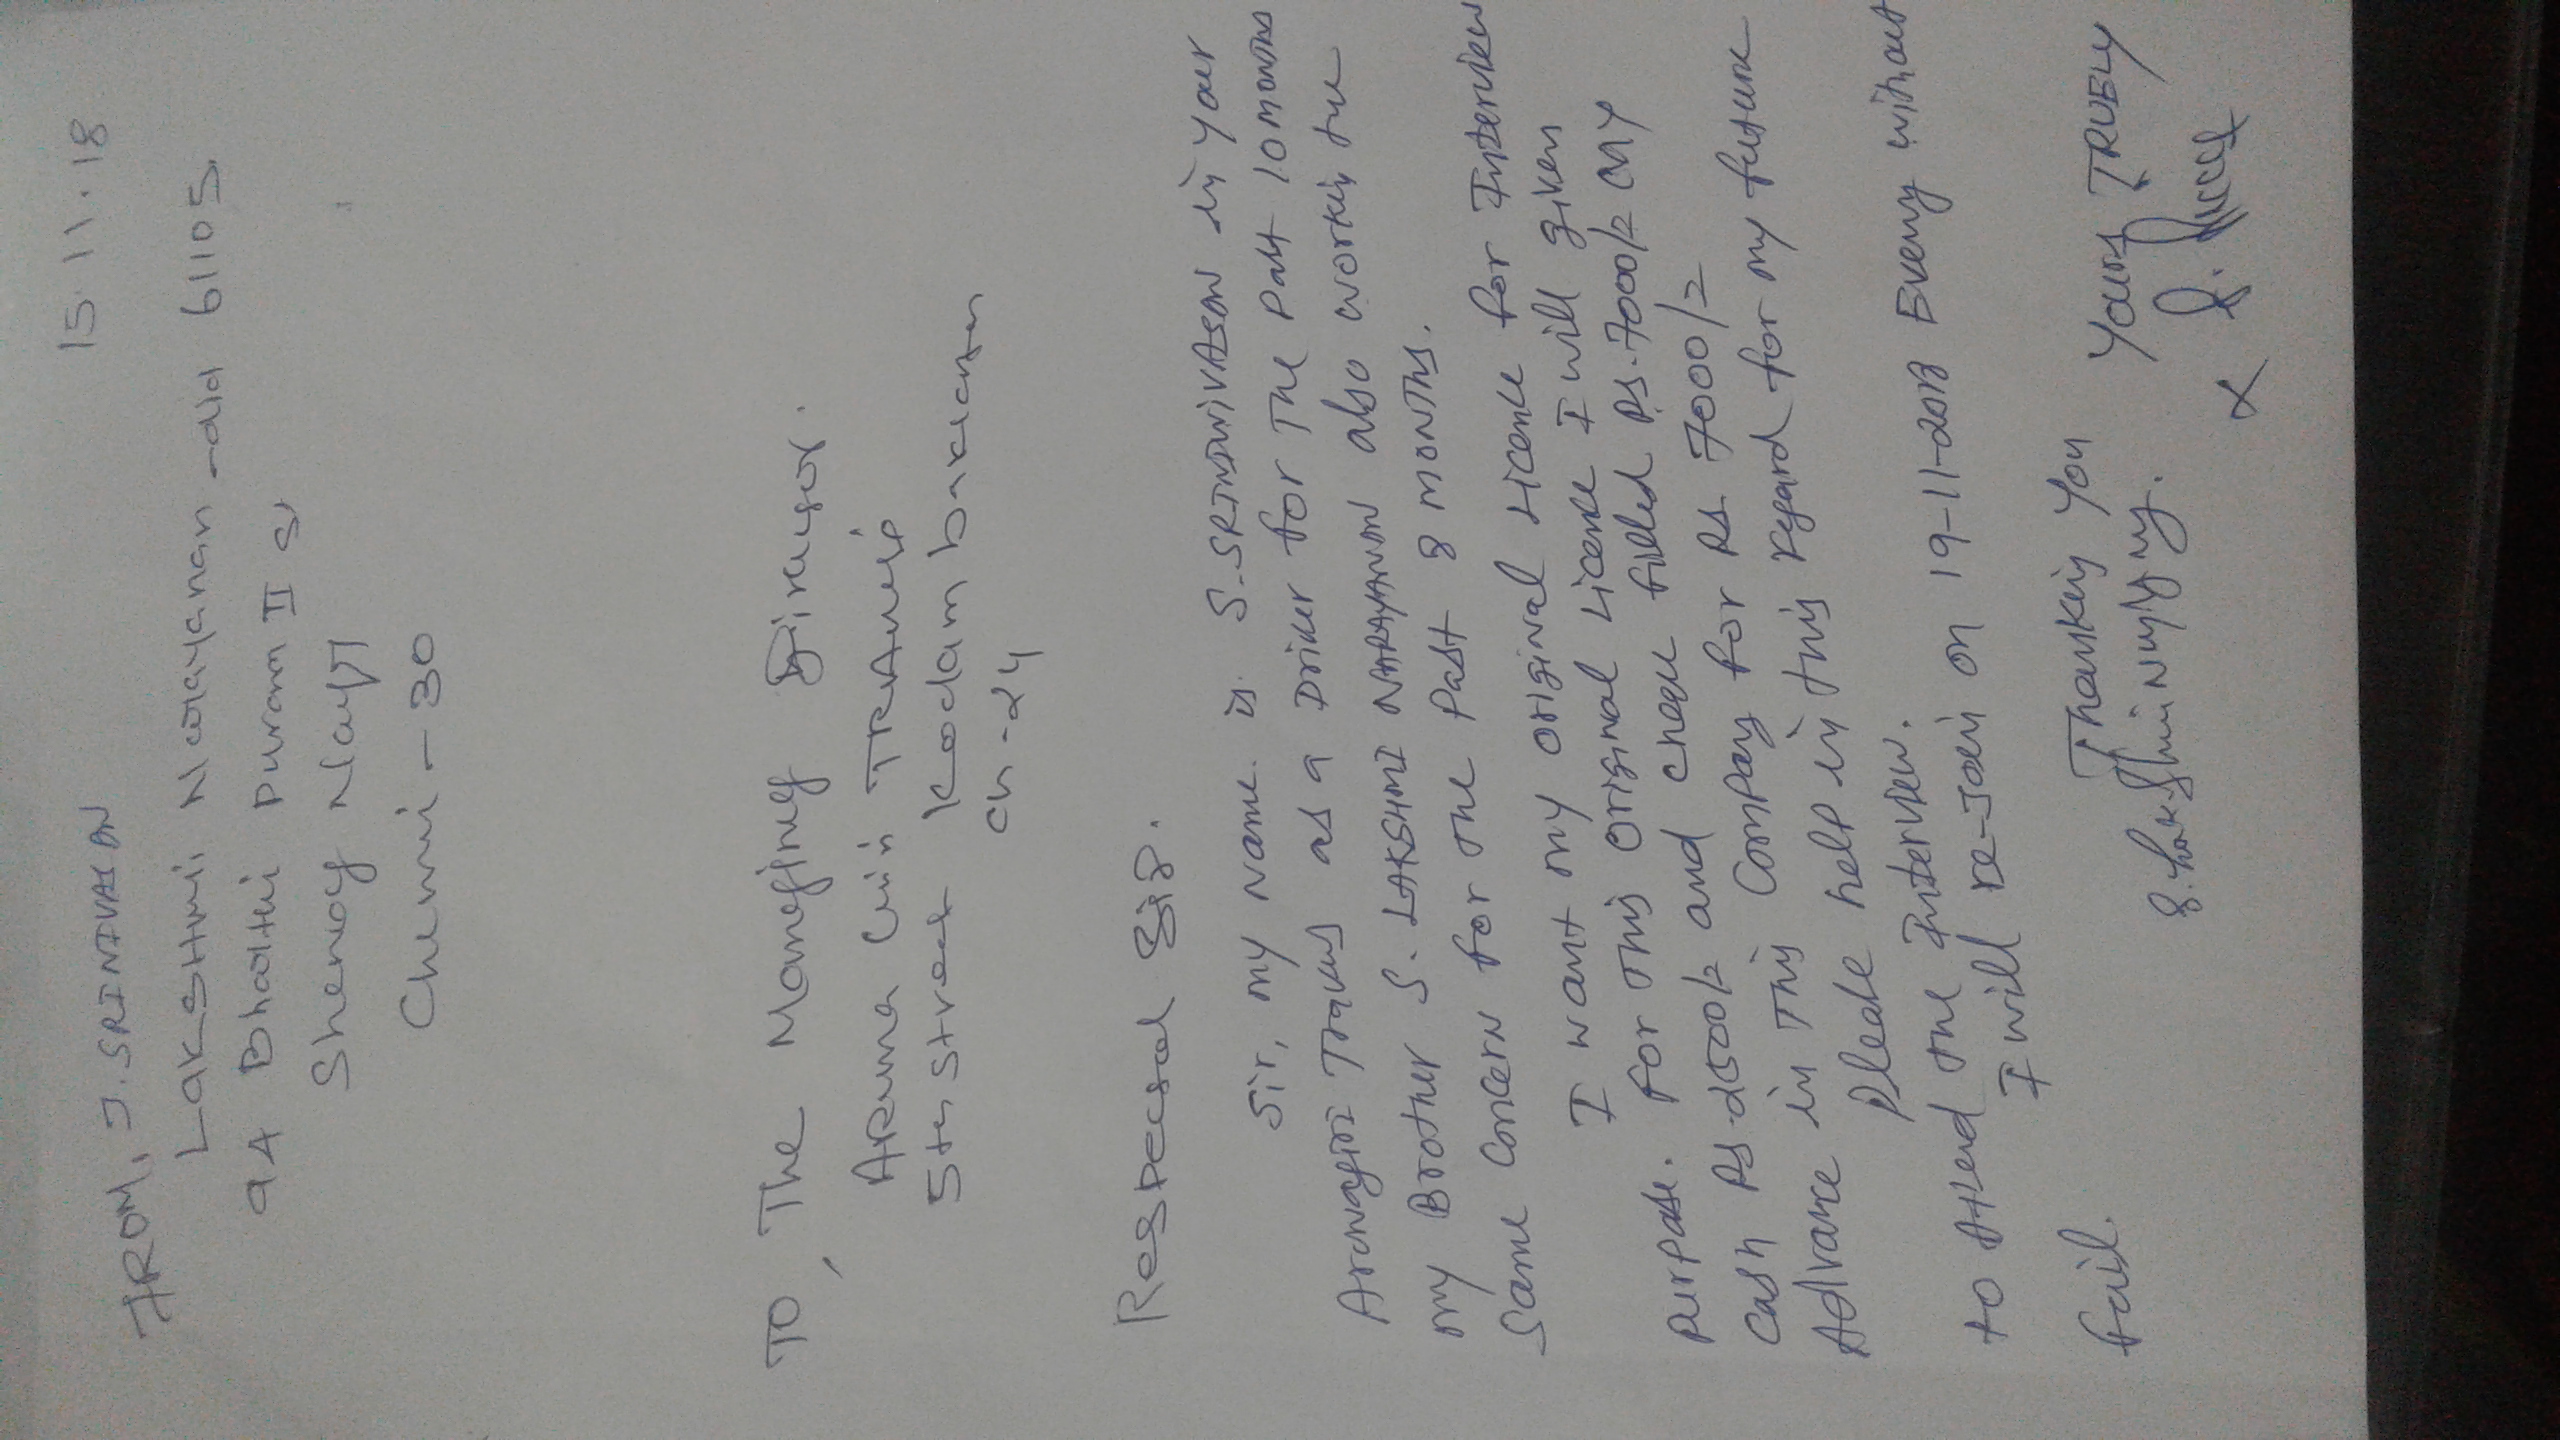 15.11.18
FROM, J. SRINIVASAN
LAKSHMI Narayanan - old 61105
9A Bharthi Puram II St
Shenoy Nagar
Chennai - 30
TO, The Managing Director.
Aruna Giri TRAVels
5th Street Kodambakam
Ch-24
Respected Sir.
Sir, my Name is. S. SRINIVASAN in your
Arunagiri Travels as a Driver for The Past 10 months
my Brother S. LAKSHMI NARAYANAN also workin the
Same Concern for the Past 8 months.
I want my original License for Interview
purpose. For this original License I will given
Cash Rs. 2500/- and cheque filled Rs. 7000/- any
Advance in This Company for Rs. 7000/-
Please help in this Regard for my future
to Attend the Interview.
I will re-Join on 19-11-2018 without
fail.
Thanking You Yours TRUELY